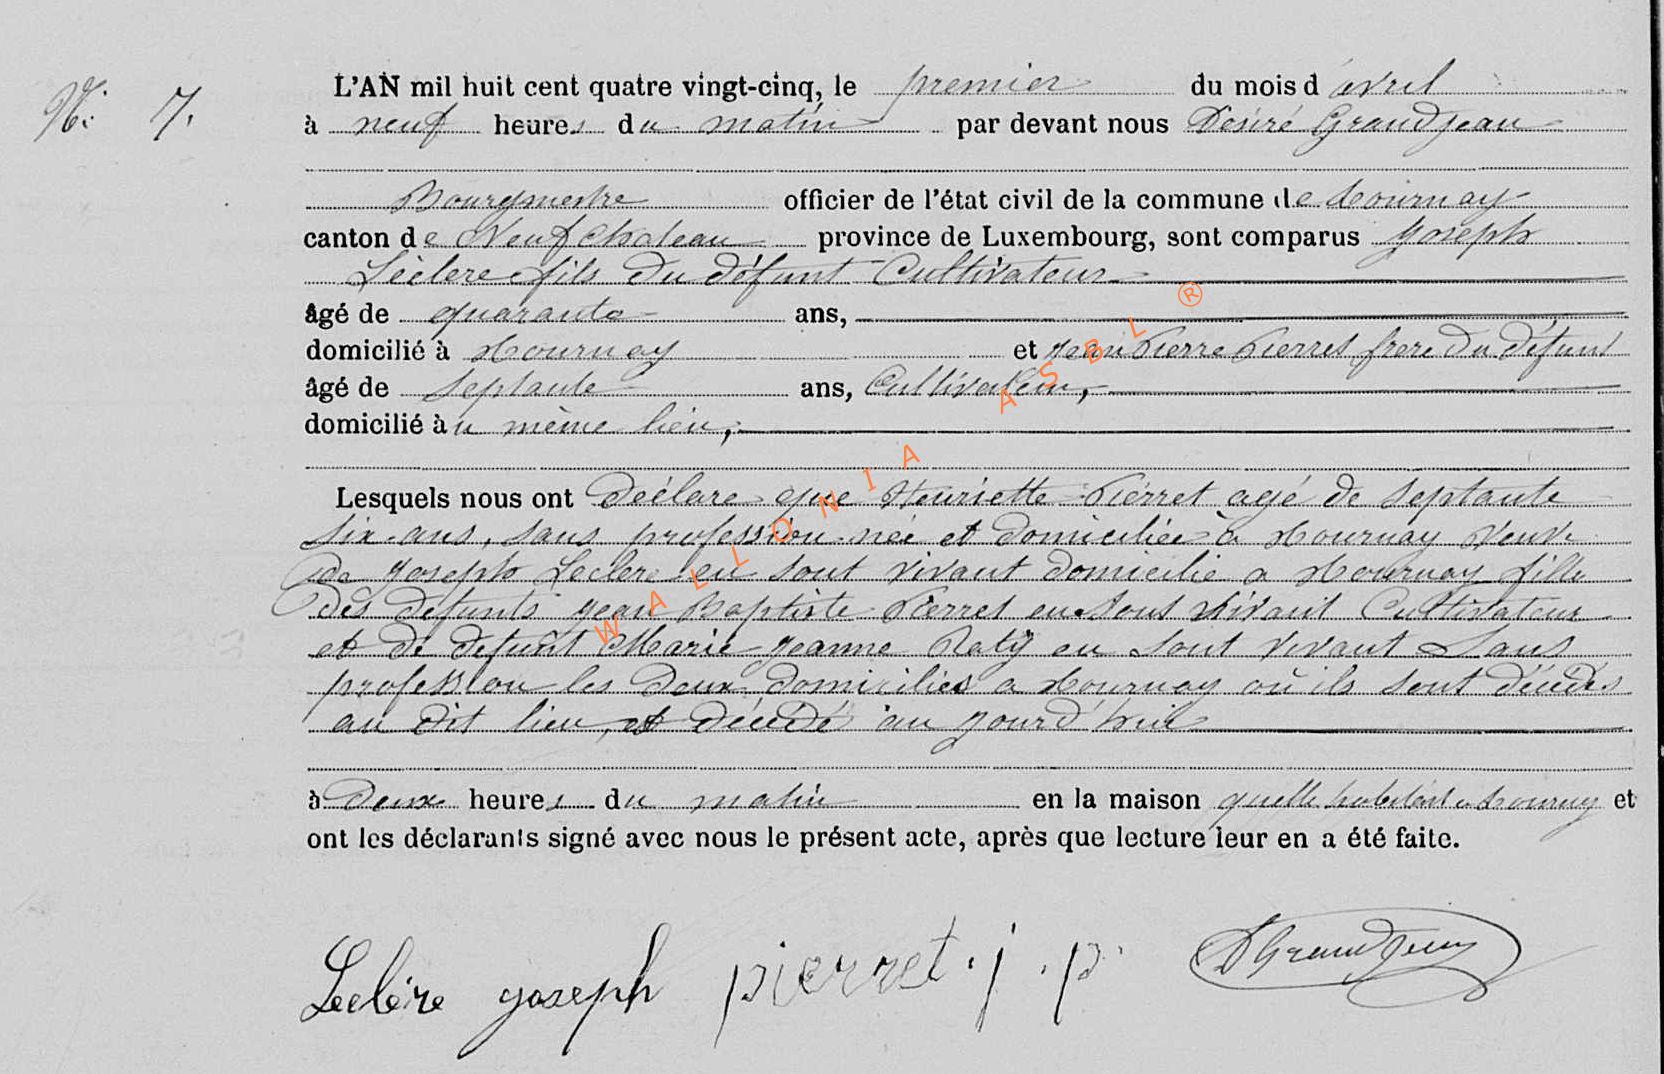 N: 7.
L'AN mil huit cent quatre vingt-cinq, le premier du mois d'avril
à neuf heures du matin par devant nous Désiré Grandjean
Bourgmestre officier de l'état civil de la commune de Tournay
canton de Neufchateau province de Luxembourg, sont comparus Joseph
Leclere fils du défunt Cultivateur
âgé de quarante ans,
domicilié à Tournay et Jean Pierre Pierret frere du défunt
âgé de septante ans, Cultivateur,
domicilié au même lieu,
Lesquels nous ont déclare que Henriette Pierret agé de septante
six ans, sans profession née et domiciliée à Tournay veuve
de Joseph Leclere en sont vivant domicilié a Tournay fille
des défunts Jean Baptiste Pierret en sont vivant Cultivateur
et de defunt Marie Jeanne Raty en sont vivant sans
profession les deux domiciliés a Tournay où ils sont décédés
au dit lieu, est décédé au jourd'hui
à deux heures du matin en la maison quelle habitait a Tournay et
ont les déclarants signé avec nous le présent acte, après que lecture leur en a été faite.
Leclère joseph pierret . j . p. DGrandjean
WALLONIA ASBL ®